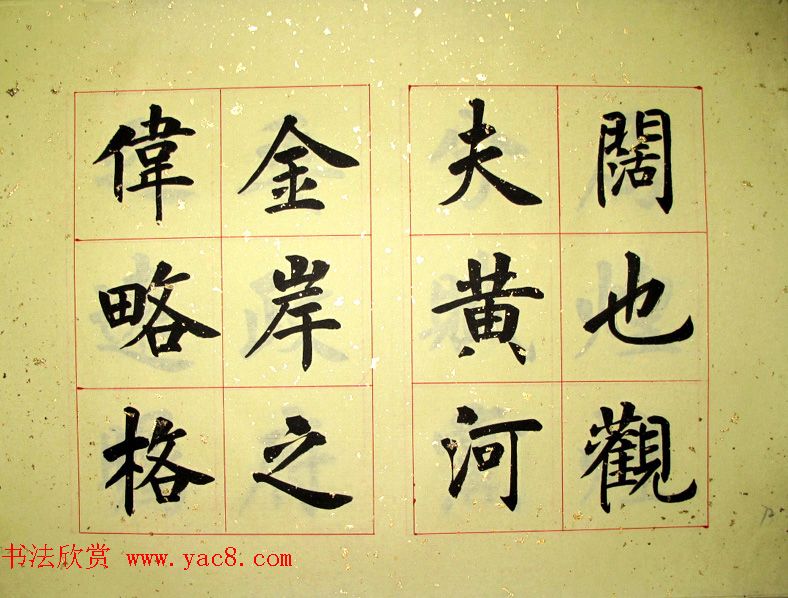 闊也觀
夫黄河
金岸之
偉略格
书法欣赏 www.yac8.com